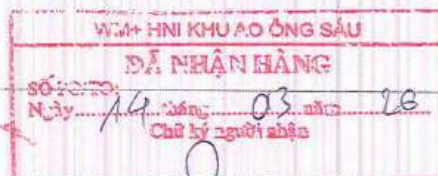 WM+ HNI KHU AO ÔNG SÁU
ĐÃ NHẬN HÀNG
SỐ PO/TO:
Ngày 14 tháng 03 năm 26
Chữ ký người nhận